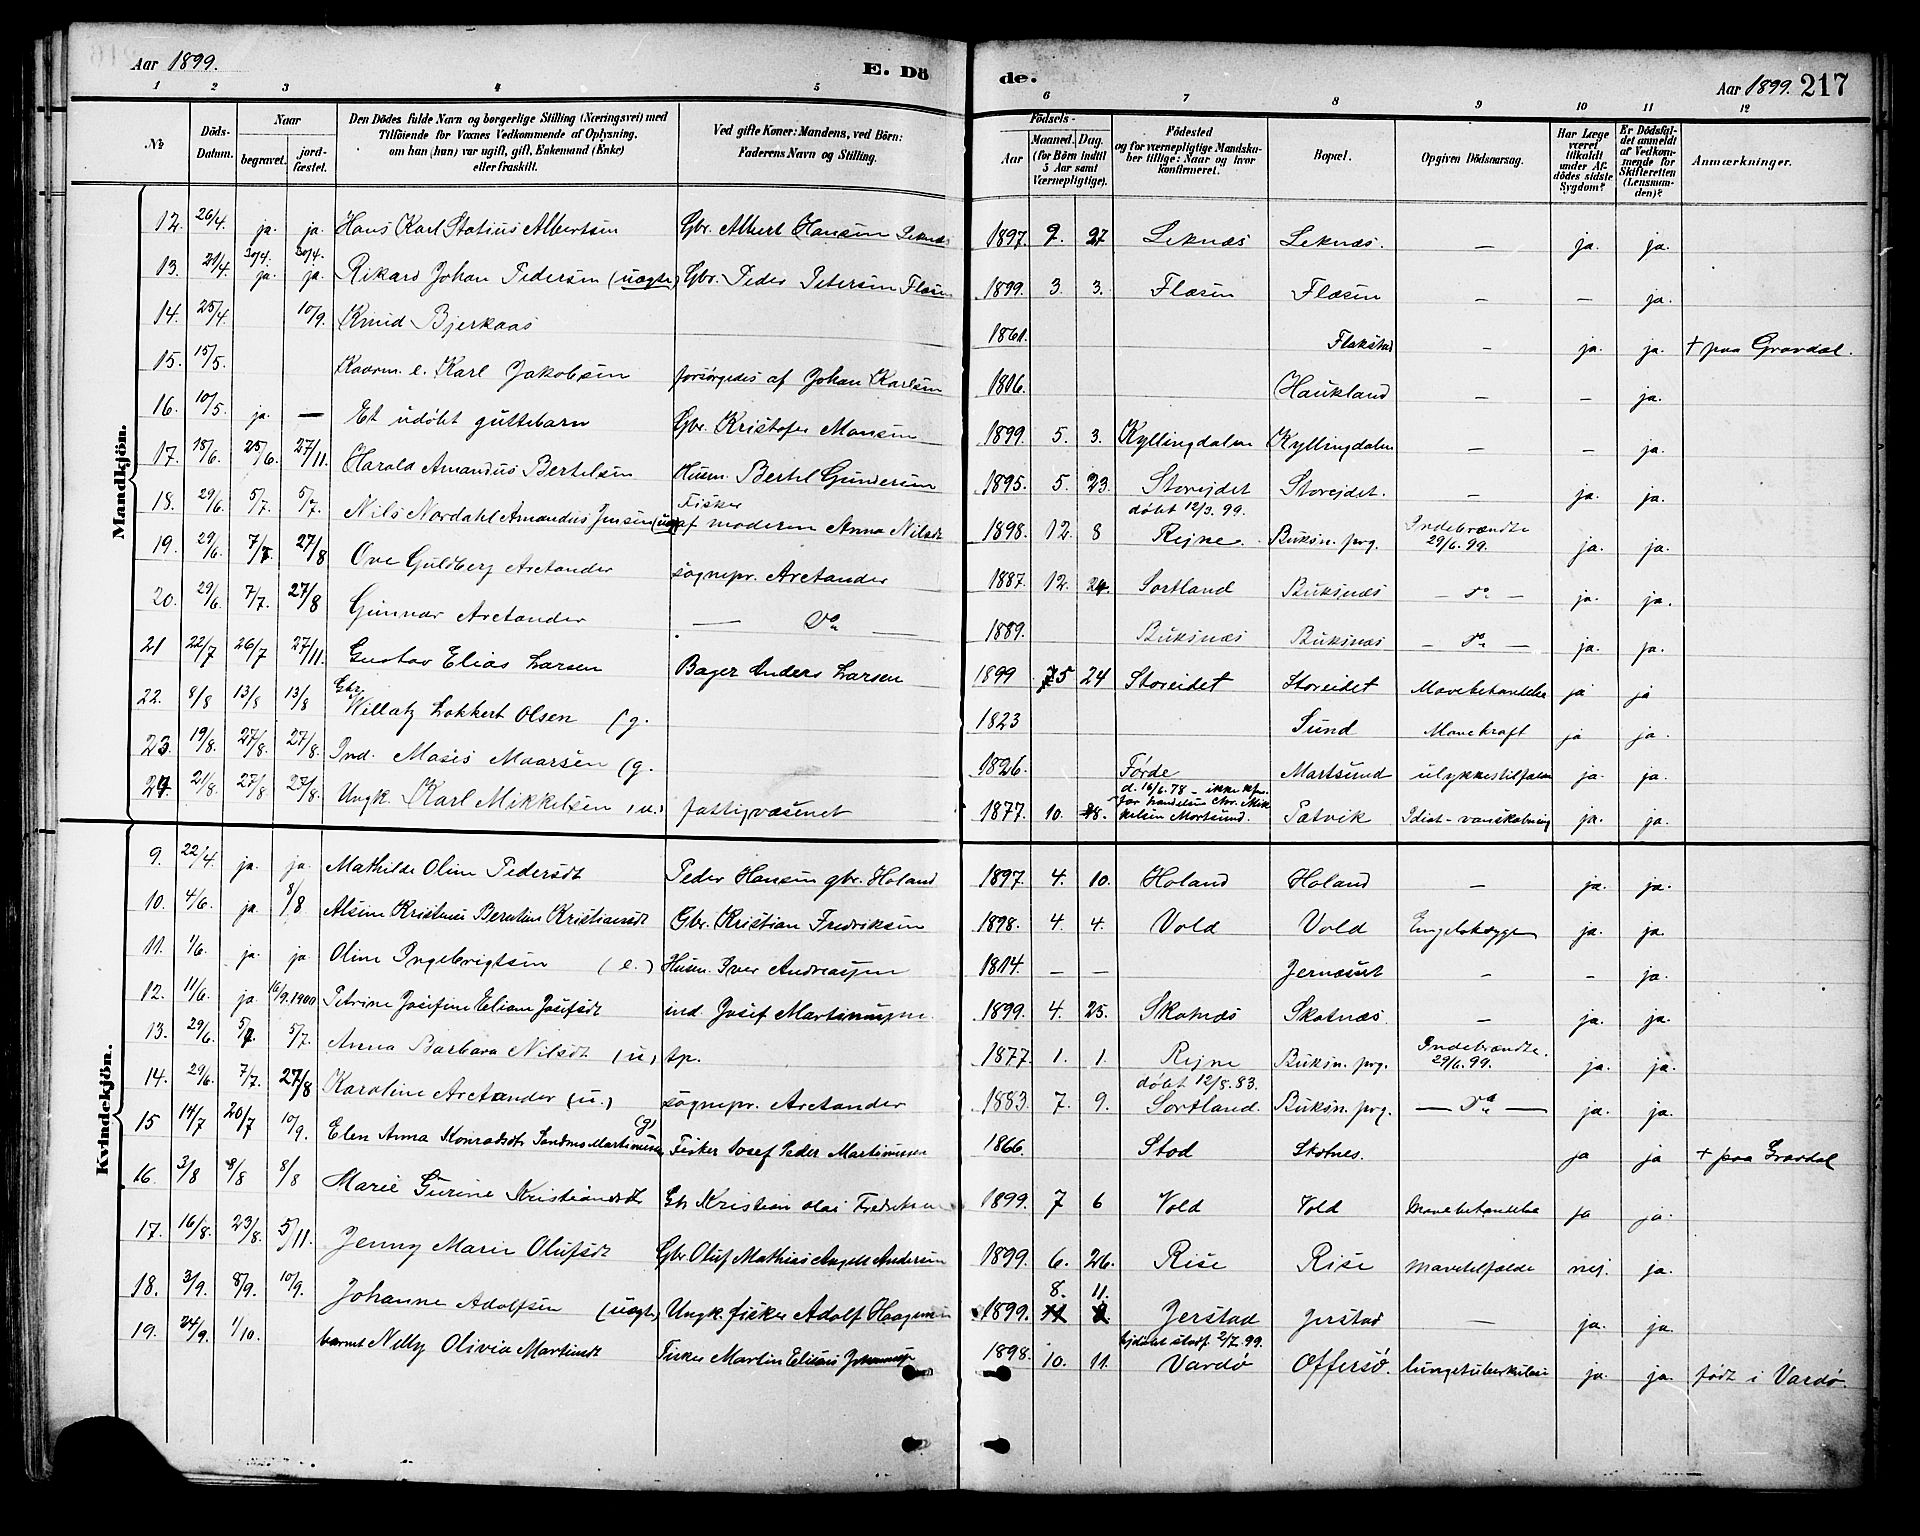 Aar 1899. E. Dö de. Aar 1899. 217
1 2 3 4 5 6 7 8 9 10 11 12
№ Döds-Datum. Naar begravet. jordfæstet. Den Dödes fulde Navn og borgerlige Stilling (Næringsvei) med Tilföiende for Voxnes Vedkommende af Oplysning, om han (hun) var ugift, gift, Enkemand (Enke) eller fraskilt. Ved gifte Koner: Mandens, ved Börn: Faderens Navn og Stilling. Födsels- Aar Maaned. Dag. (for Börn indtil 5 Aar samt Værnepligtige). Födested og for værnepligtige Mandskaber tillige: Naar og hvor konfirmeret. Bopæl. Opgiven Dödsaarsag. Har Læge været tilkaldt under Afdödes sidste Sygdom? Er Dödsfaldet anmeldt af Vedkommende for Skifteretten (Lensmanden)? Anmærkninger.
Mandkjön.
12. 26/4. ja. ja. Hans Karl Statius Albertsen Gbr. Albert Hansen Leknæs 1897. 9. 27 Leknæs Leknæs. — ja. ja.
13. 21/4. 30/4. ja. 30/4. ja. Rikard Johan Pedersen (uægte) Gbr. Peder Petersen Flæsen 1899. 3. 3. Flæsen Flæsen — — ja.
14. 25/4. 10/9. Knud Bjerkaas 1861. Flakstad — ja. ja. + paa Gravdal.
15. 15/5. Kaarm. e. Karl Jakobsen forsørgedes af Johan Karlsen 1816. Haukland — — ja.
16. 10/5. ja. — Et udøbt guttebarn Gbr. Kristofer Monsen 1899. 5. 3. Kyllingdalen Kyllingdalen — — ja.
17. 15/6. 25/6. 27/11. Harald Amandus Bertelsen Husm. Bertel Gundersen 1895. 5. 23. Storeidet Storeidet. — ja. ja.
18. 29/6. 5/7. 5/7. Nils Nordahl Amandus Jensen (uæ) Fisker af moderen Anna Nilsdt 1898. 12. 8 døbt 12/3. 99. Rejne. Buksn. prg. Indebrændte 29/6. 99. ja. ja.
19. 29/6. 7/7. 27/8 Ove Guldberg Arctander sognepr. Arctander 1887. 12. 24. Sortland Buksnæs — do — ja. ja.
20. 29/6. 7/7. 27/8 Gunnar Arctander — Do — 1889. Buksnæs Buksnæs — do — ja. ja.
21 22/7 26/7 27/11. Gustav Elias Larsen Bager Anders Larsen 1899 5 24 Storeidet Storeidet Mavebetændelse ja ja
22. 8/8 13/8 13/8 Gbr Willatz Lokkert Olsen (g. 1823 Sund Mavekræft ja ja.
23. 19/8. 27/8. 27/8. Ind. Moses Maarsen (g. 1826. Førde Mortsund ulykkestilfælde ja. ja.
24. 21/8. 27/8 27/8. Ungk. Karl Mikkelsen (u.) fattigvæsenet 1877. 10. 8. d. 16/6. 78 – ikke kfm. Far handelsm Chr. Mikkelsen Mortsund. Petvik Idiot – vanskabning ja. ja.
Kvindekjön.
9. 22/4. ja. ja. Mathilde Oline Pedersdt Peder Hansen gbr. Holand 1897. 4. 10. Holand Holand — ja. ja.
10. 4/6. ja 8/8 Alsine Kristine Berntine Kristiansdt Gbr. Kristian Fredriksen 1898. 4. 4. Vold Vold Engelsksyge ja. ja.
11. 1/6. ja. ja. Oline Ingebrigtsen (e.) Husm. Iver Andreassen 1814. — — Jernæsset — — ja.
12. 11/6. ja 16/9. 1900 Petrine Josefine Eliane Josefsdt ind. Josef Martinussen 1899. 4. 25. Skotnæs Skotnæs. — ja. ja.
13. 29/6. 5/7. 5/7. Anna Barbara Nilsdt (u) tp. 1877. 1. 1. Rejne Buksn. prg. Indebrændte. 29/6. 99. ja. ja.
14. 29/6. 7/7. 27/8 Karoline Arctander (u.) sognepr. Arctander 1883. 7. 9. døbt 12/8. 83. Sortland. Buksn. prg. — do — ja. ja.
15 14/7 20/7 10/9. Elen Anna Konradsdt Martinussen (g) Fisker Josef Peder Martinussen 1866. Stod Skotnes. ja ja + paa Gravdal
16. 3/8 8/8 8/8 Marie Gurine Kristiansdt Gbr Kristian Olai Fredriksen 1899. 7 6 Vold Vold Mavebetændelse ja ja.
17. 16/8. 23/8. 5/11. Jenny Marie Olufsdt Gbr Oluf Mathias Angell Andersen 1899. 6. 26. Rise Rise Mavetilfælde nej. ja.
18. 3/9. 8/9. 10/9. Johanne Adolfsen (uægte) Ungk. fisker Adolf Haagensen 1899. 8. 11. Jerstad Jerstad — ja. ja.
19. 24/9. 1/10. barnet Nelly Olivia Martinsdt Fisker Martin Elisæus 1898. 10. 11. hjdøbt stadf. 2/7. 99. Vardø Offersø. lungetuberkulose ja. ja. født i Vardø.